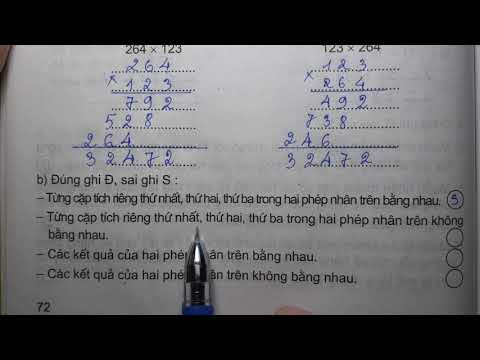 264 × 123
123 × 264
264
× 123
792
528
264
32472
123
× 264
492
738
246
32472
b) Đúng ghi Đ, sai ghi S :
– Từng cặp tích riêng thứ nhất, thứ hai, thứ ba trong hai phép nhân trên bằng nhau. S
– Từng cặp tích riêng thứ nhất, thứ hai, thứ ba trong hai phép nhân trên không
bằng nhau.
– Các kết quả của hai phép nhân trên bằng nhau.
– Các kết quả của hai phép nhân trên không bằng nhau.
72